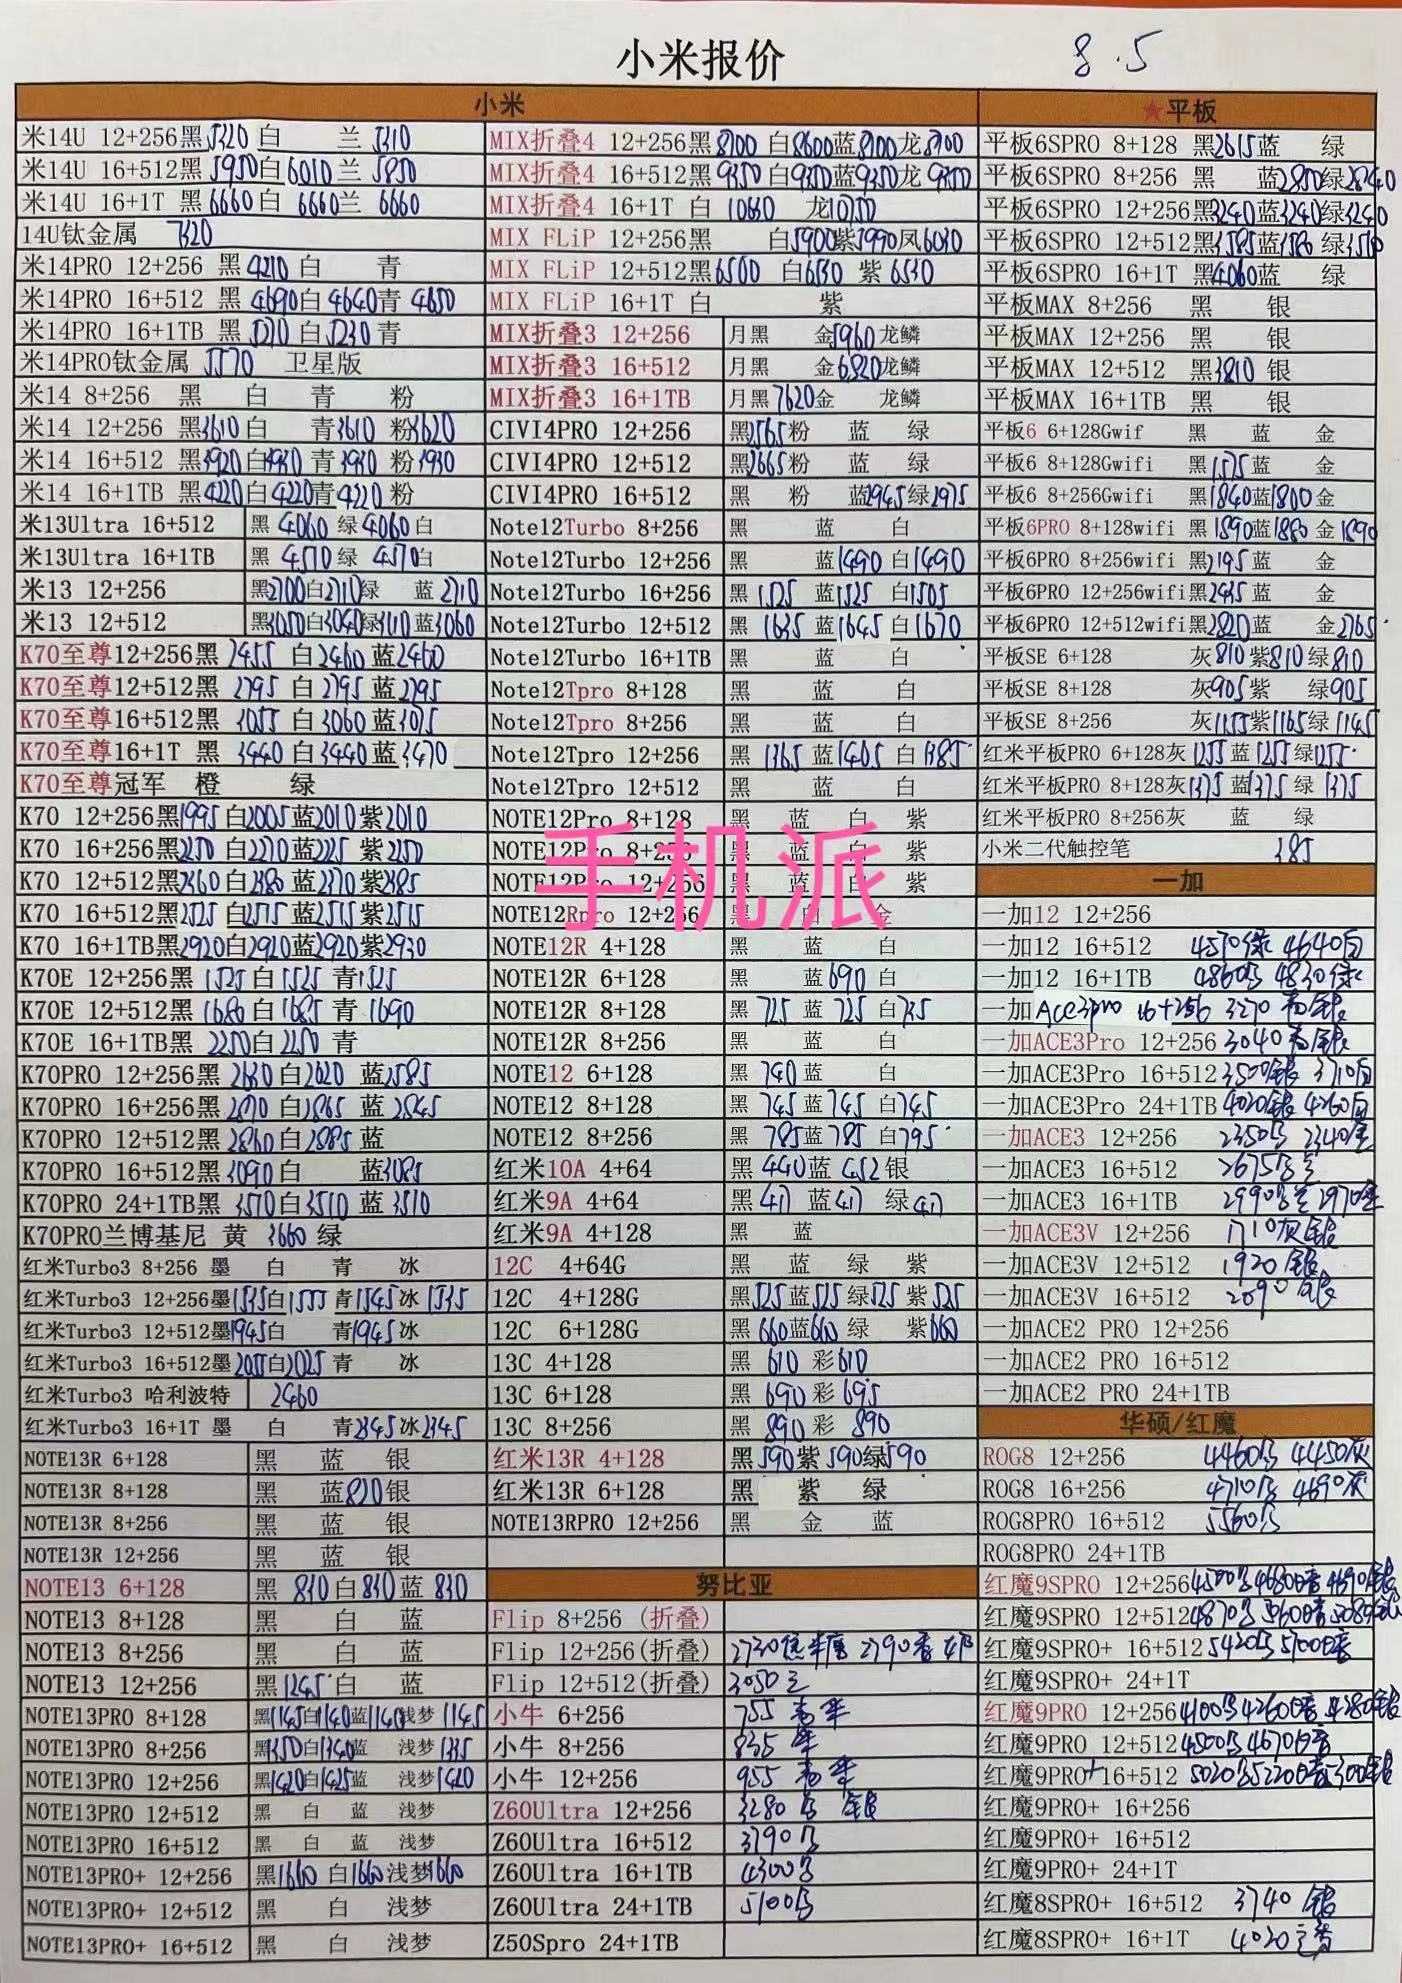 小米报价 8.5
小米
米14U 12+256黑5320 白 兰 5310
米14U 16+512黑 5950白6010兰 5850
米14U 16+1T 黑 6660白 6660兰 6660
14U钛金属 7320
米14PRO 12+256 黑4210 白 青
米14PRO 16+512 黑 4690白 4640青 4650
米14PRO 16+1TB 黑 5270 白5230青
米14PRO钛金属 5570 卫星版
米14 8+256 黑 白 青 粉
米14 12+256 黑3610白 青3610 粉3620
米14 16+512 黑3920白3930 青3930 粉3930
米14 16+1TB 黑4220白4220青4220 粉
米13Ultra 16+512 黑 4060 绿4060白
米13Ultra 16+1TB 黑 4570绿 4570白
米13 12+256 黑2700白2710绿 蓝 2710
米13 12+512 黑3050白3040绿3110蓝3060
K70至尊12+256黑 2455 白2460蓝2460
K70至尊12+512黑 2795 白 2795 蓝2795
K70至尊16+512黑 3055 白3060蓝3075
K70至尊16+1T 黑 3440白3440蓝3470
K70至尊冠军 橙 绿
K70 12+256黑1995白2005蓝2010紫2010
K70 16+256黑2250 白2270蓝2225 紫2250
K70 12+512黑2360白2380 蓝2370紫2385
K70 16+512黑2525 白2515蓝2515紫2515
K70 16+1TB黑2920白2920蓝2920紫2930
K70E 12+256黑 1525白1525 青1525
K70E 12+512黑 1680白1685 青 1690
K70E 16+1TB黑 2250白2250 青
K70PRO 12+256黑 2630白2620 蓝2585
K70PRO 16+256黑2870 白2865 蓝 2845
K70PRO 12+512黑2860白2885蓝
K70PRO 16+512黑3090白 蓝3085
K70PRO 24+1TB黑 3570白3510 蓝 3510
K70PRO兰博基尼 黄 3660 绿
红米Turbo3 8+256 墨 白 青 冰
红米Turbo3 12+256墨1535白1555 青1545冰1535
红米Turbo3 12+512墨1945白 青1945冰
红米Turbo3 16+512墨2055白2025 青 冰
红米Turbo3 哈利波特 2460
红米Turbo3 16+1T 墨 白 青2345冰2345
NOTE13R 6+128 黑 蓝 银
NOTE13R 8+128 黑 蓝820银
NOTE13R 8+256 黑 蓝 银
NOTE13R 12+256 黑 蓝 银
NOTE13 6+128 黑 830白830蓝 830
NOTE13 8+128 黑 白 蓝
NOTE13 8+256 黑 白 蓝
NOTE13 12+256 黑1245 白 蓝
NOTE13PRO 8+128 黑1145白1140蓝1140浅梦 1145
NOTE13PRO 8+256 黑1350白1340蓝 浅梦1335
NOTE13PRO 12+256 黑1420白1425蓝 浅梦1420
NOTE13PRO 12+512 黑 白 蓝 浅梦
NOTE13PRO 16+512 黑 白 蓝 浅梦
NOTE13PRO+ 12+256 黑1660 白1660浅梦1660
NOTE13PRO+ 12+512 黑 白 浅梦
NOTE13PRO+ 16+512 黑 白 浅梦
MIX折叠4 12+256黑8700 白8600蓝8700龙8700
MIX折叠4 16+512黑9350白9350蓝9350龙 9350
MIX折叠4 16+1T 白 10660 龙10750
MIX FLiP 12+256黑 白5900紫5990凤6030
MIX FLiP 12+512黑6500 白6530 紫 6530
MIX FLiP 16+1T 白 紫
MIX折叠3 12+256 月黑 金5960龙鳞
MIX折叠3 16+512 月黑 金6820龙鳞
MIX折叠3 16+1TB 月黑7620金 龙鳞
CIVI4PRO 12+256 黑2565粉 蓝 绿
CIVI4PRO 12+512 黑2665粉 蓝 绿
CIVI4PRO 16+512 黑 粉 蓝2945绿2975
Note12Turbo 8+256 黑 蓝 白
Note12Turbo 12+256 黑 蓝1490 白1490
Note12Turbo 16+256 黑 1525 蓝1525 白1505
Note12Turbo 12+512 黑 1635 蓝1645 白1670
Note12Turbo 16+1TB 黑 蓝 白
Note12Tpro 8+128 黑 蓝 白
Note12Tpro 8+256 黑 蓝 白
Note12Tpro 12+256 黑 1365 蓝1405 白1385
Note12Tpro 12+512 黑 蓝 白
NOTE12Pro 8+128 黑 蓝 白 紫
NOTE12Pro 8+256 黑 蓝 白 紫
NOTE12Pro 12+256 黑 蓝 白 紫
NOTE12Rpro 12+256 黑 白 金
手机派
NOTE12R 4+128 黑 蓝 白
NOTE12R 6+128 黑 蓝690 白
NOTE12R 8+128 黑 725 蓝 725 白735
NOTE12R 8+256 黑 蓝 白
NOTE12 6+128 黑 740蓝 白
NOTE12 8+128 黑 745 蓝745 白745
NOTE12 8+256 黑 785蓝 785 白795
红米10A 4+64 黑 440蓝 452银
红米9A 4+64 黑 417 蓝417 绿417
红米9A 4+128 黑 蓝
12C 4+64G 黑 蓝 绿 紫
12C 4+128G 黑525蓝525绿525 紫525
12C 6+128G 黑 660蓝660 绿 紫660
13C 4+128 黑 610 彩610
13C 6+128 黑 690 彩 695
13C 8+256 黑 890彩 890
红米13R 4+128 黑590紫 590绿590
红米13R 6+128 黑 紫 绿
NOTE13RPRO 12+256 黑 金 蓝
努比亚
Flip 8+256 (折叠)
Flip 12+256(折叠) 2790
Flip 12+512(折叠) 3050
小牛 6+256 755 青 牛
小牛 8+256 835 牛
小牛 12+256 955 青 牛
Z60Ultra 12+256 3280 黑 银
Z60Ultra 16+512 3790黑
Z60Ultra 16+1TB 4300黑
Z60Ultra 24+1TB 5100黑
Z50Spro 24+1TB
★平板
平板6SPRO 8+128 黑2615蓝 绿
平板6SPRO 8+256 黑 蓝2850绿2840
平板6SPRO 12+256黑3240蓝3240绿3240
平板6SPRO 12+512黑3585蓝3580 绿3580
平板6SPRO 16+1T 黑4060蓝 绿
平板MAX 8+256 黑 银
平板MAX 12+256 黑 银
平板MAX 12+512 黑3810 银
平板MAX 16+1TB 黑 银
平板6 6+128Gwif 黑 蓝 金
平板6 8+128Gwifi 黑1575蓝 金
平板6 8+256Gwifi 黑1840蓝1800金
平板6PRO 8+128wifi 黑 1890蓝1880 金1890
平板6PRO 8+256wifi 黑2195蓝 金
平板6PRO 12+256wifi黑2435蓝 金
平板6PRO 12+512wifi黑2820蓝 金2765
平板SE 6+128 灰810紫810绿810
平板SE 8+128 灰905紫 绿905
平板SE 8+256 灰1155紫1165绿1145
红米平板PRO 6+128灰1255蓝1255绿1255
红米平板PRO 8+128灰1375蓝1375 绿 1375
红米平板PRO 8+256灰 蓝 绿
小米二代触控笔 385
一加
一加12 12+256
一加12 16+512 4570绿 4640白
一加12 16+1TB 4860黑 4830绿
一加Ace3pro 16+256 3270 青银
一加ACE3Pro 12+256 3040青银
一加ACE3Pro 16+512 3500银 3710白
一加ACE3Pro 24+1TB 4020银 4260白
一加ACE3 12+256 2350黑 2340金
一加ACE3 16+512 2675
一加ACE3 16+1TB 2990 2970金
一加ACE3V 12+256 1710灰银
一加ACE3V 12+512 1920 银
一加ACE3V 16+512 2090 银
一加ACE2 PRO 12+256
一加ACE2 PRO 16+512
一加ACE2 PRO 24+1TB
华硕/红魔
ROG8 12+256 4460黑 4450灰
ROG8 16+256 4710黑 4690灰
ROG8PRO 16+512 5560黑
ROG8PRO 24+1TB
红魔9SPRO 12+256 4500黑4680暗4690银
红魔9SPRO 12+512 4870黑
红魔9SPRO+ 16+512 5420黑5700暗
红魔9SPRO+ 24+1T
红魔9PRO 12+256 4100黑4260暗4280银
红魔9PRO 12+512 4500黑4670暗
红魔9PRO+16+512 5020黑5220暗5300银
红魔9PRO+ 16+256
红魔9PRO+ 16+512
红魔9PRO+ 24+1T
红魔8SPRO+ 16+512 3740 银
红魔8SPRO+ 16+1T 4020